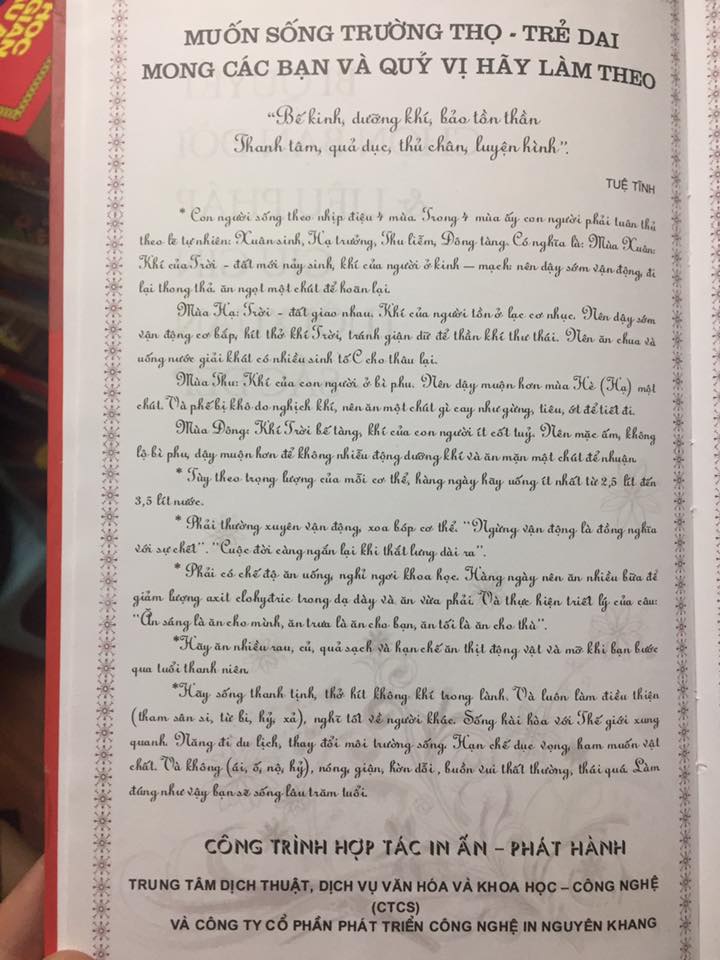 MUỐN SỐNG TRƯỜNG THỌ - TRẺ DAI
MONG CÁC BẠN VÀ QUÝ VỊ HÃY LÀM THEO
“Bế kinh, dưỡng khí, bảo tồn thần
Thanh tâm, quả dục, thủ chân, luyện hình”.
TUỆ TĨNH
* Con người sống theo nhịp điệu 4 mùa. Trong 4 mùa ấy con người phải tuân thủ
theo lẽ tự nhiên: Xuân sinh, Hạ trưởng, Thu liễm, Đông tàng. Có nghĩa là: Mùa Xuân:
Khí của Trời - đất mới nảy sinh, khí của người ở kinh – mạch: nên dậy sớm vận động, đi
lại thong thả, ăn ngọt một chút để hoãn lại.
Mùa Hạ: Trời - đất giao nhau. Khí của người tồn ở lạc cơ nhục. Nên dậy sớm
vận động cơ bắp, hít thở khí Trời, tránh giận dữ để thần khí thư thái. Nên ăn chua và
uống nước giải khát có nhiều sinh tố C cho thâu lại.
Mùa Thu: Khí của con người ở bì phu. Nên dậy muộn hơn mùa Hè (Hạ) một
chút. Và phế bị khô do nghịch khí, nên ăn một chút gì cay như gừng, tiêu, ớt để tiết đi.
Mùa Đông: Khí Trời bế tàng, khí của con người ít cốt tuỷ. Nên mặc ấm, không
lộ bì phu, dậy muộn hơn để không nhiễu động dưỡng khí và ăn mặn một chút để nhuận.
* Tùy theo trọng lượng của mỗi cơ thể, hàng ngày hãy uống ít nhất từ 2,5 lít đến
3,5 lít nước.
* Phải thường xuyên vận động, xoa bóp cơ thể. “Ngừng vận động là đồng nghĩa
với sự chết”. “Cuộc đời càng ngắn lại khi thắt lưng dài ra”.
* Phải có chế độ ăn uống, nghỉ ngơi khoa học. Hàng ngày nên ăn nhiều bữa để
giảm lượng axit clohyđric trong dạ dày và ăn vừa phải. Và thực hiện triết lý của câu:
“Ăn sáng là ăn cho mình, ăn trưa là ăn cho bạn, ăn tối là ăn cho thù”.
*Hãy ăn nhiều rau, củ, quả sạch và hạn chế ăn thịt động vật và mỡ khi bạn bước
qua tuổi thanh niên.
*Hãy sống thanh tịnh, thở hít không khí trong lành. Và luôn làm điều thiện
(tham sân si, từ bi, hỷ, xả), nghĩ tốt về người khác. Sống hài hòa với Thế giới xung
quanh. Năng đi du lịch, thay đổi môi trường sống. Hạn chế dục vọng, ham muốn vật
chất. Và không (ái, ố, nộ, hỷ), nóng, giận, hờn dỗi, buồn vui thất thường, thái quá. Làm
đúng như vậy bạn sẽ sống lâu trăm tuổi.
CÔNG TRÌNH HỢP TÁC IN ẤN – PHÁT HÀNH
TRUNG TÂM DỊCH THUẬT, DỊCH VỤ VĂN HÓA VÀ KHOA HỌC – CÔNG NGHỆ
(CTCS)
VÀ CÔNG TY CỔ PHẦN PHÁT TRIỂN CÔNG NGHỆ IN NGUYÊN KHANG